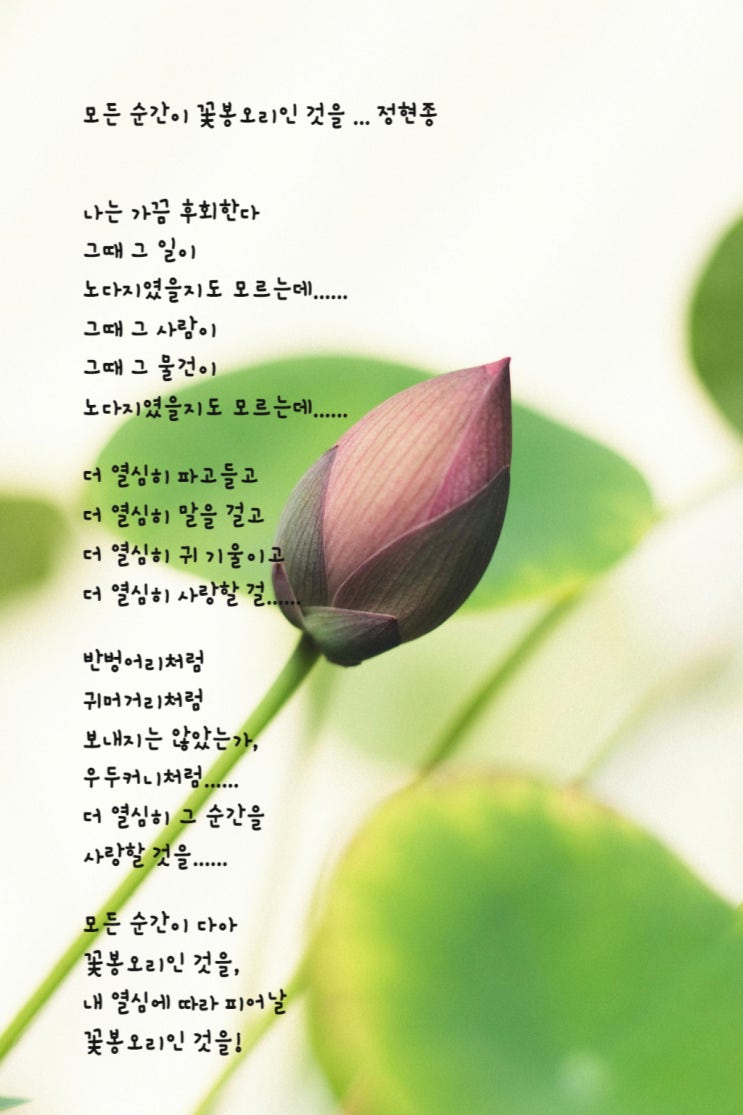 모든 순간이 꽃봉오리인 것을 ... 정현종
나는 가끔 후회한다
그때 그 일이
노다지였을지도 모르는데......
그때 그 사람이
그때 그 물건이
노다지였을지도 모르는데......
더 열심히 파고들고
더 열심히 말을 걸고
더 열심히 귀 기울이고
더 열심히 사랑할 걸......
반벙어리처럼
귀머거리처럼
보내지는 않았는가,
우두커니처럼......
더 열심히 그 순간을
사랑할 것을......
모든 순간이 다아
꽃봉오리인 것을,
내 열심에 따라 피어날
꽃봉오리인 것을!